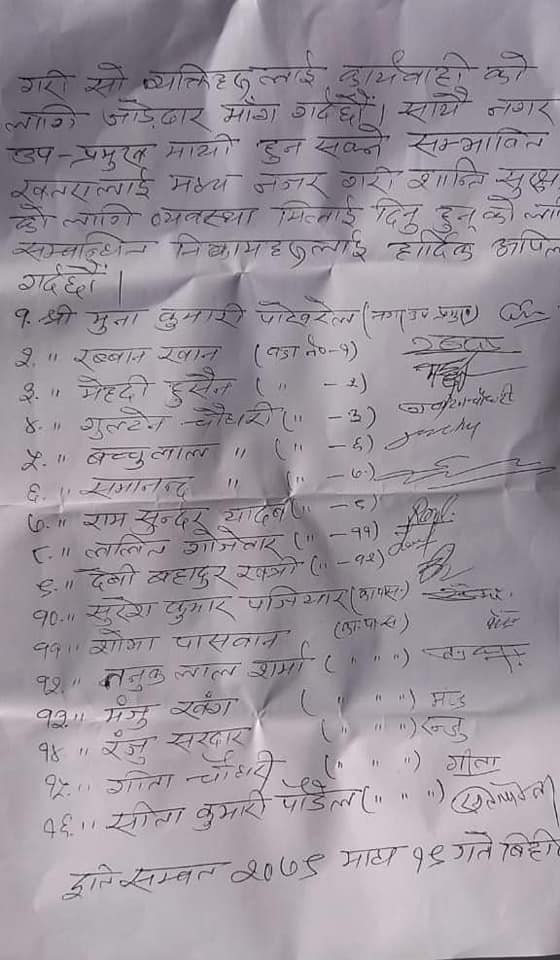 गरी सो व्यक्तिहरुलाई कार्यवाही को
लागि जोडेदार माँग गर्दछौं । साथै नगर
उप-प्रमुख माथी हुन सक्ने सम्भावित
खतरालाई मध्य नजर गरी शान्ति सुरक्षा
को लागि व्यवस्था मिलाई दिनु हुन् को
सम्बन्धित निकायहरुलाई हार्दिक अपिल
गर्दछौं ।
१. श्री मुना कुमारी पोखरेल (नगर उप प्रमुख)
२. " रब्बान खान (वडा नं०-१)
३. " मेहदी हुसैन (" - २)
४. " गुलटेन चौधरी (" - ३)
५. " बच्चुलाल " (" - ६)
६. " समानन्द " (" - ७)
७. " राम सुन्दर यादव (" - ९)
८. " ललित गोजेवार (" - ११)
९. " देबी बहादुर खत्री (" - १२)
१०. " सुरेश कुमार पजियार (का.पा.स.)
११. " शोभा पासवान (का.पा.स)
१२. " तनुक लाल शर्मा (" " ")
१३. " मंजु खंग (" " ") मंजु
१४. " रंजु सरदार (" " ") रन्जु
१५. " गीता चौधरी (" " ") गीता
१६. " सीता कुमारी पौडेल (" " ")
इति सम्वत २०७९ माघ १९ गते